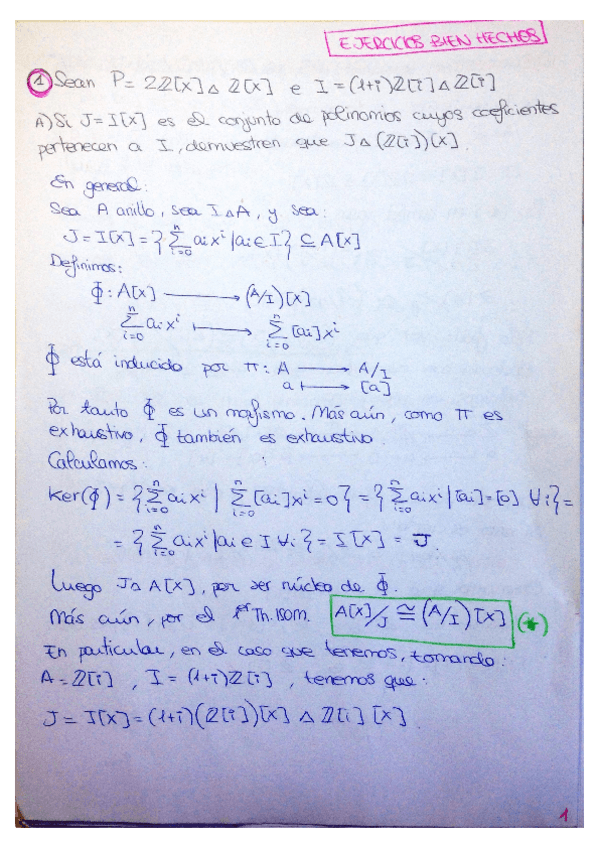 EJERCICIOS BIEN HECHOS
① Sean P = 2ℤ[x] ◁ ℤ[x] e I = (1+i)ℤ[i] ◁ ℤ[i]
A) Si J = I[x] es el conjunto de polinomios cuyos coeficientes
pertenecen a I, demuestren que J ◁ (ℤ[i])[x].
En general:
Sea A anillo, sea I ◁ A, y sea:
J = I[x] = {∑_{i=0}^{n} aᵢxⁱ | aᵢ ∈ I} ⊆ A[x]
Definimos:
Φ : A[x] ⟶ (A/I)[x]
∑_{i=0}^{n} aᵢxⁱ ⟼ ∑_{i=0}^{n} [aᵢ]xⁱ
Φ está inducido por π : A ⟶ A/I
a ⟼ [a]
Por tanto Φ es un morfismo. Más aún, como π es
exhaustivo, Φ también es exhaustivo.
Calculamos:
Ker(Φ) = {∑_{i=0}^{n} aᵢxⁱ | ∑_{i=0}^{n} [aᵢ]xⁱ = 0} = {∑_{i=0}^{n} aᵢxⁱ | [aᵢ] = [0] ∀i} =
= {∑_{i=0}^{n} aᵢxⁱ | aᵢ ∈ I ∀i} = I[x] = J.
Luego J ◁ A[x], por ser núcleo de Φ.
Más aún, por el 1er Th. Isom. A[x]/J ≅ (A/I)[x] (*)
En particular, en el caso que tenemos, tomando:
A = ℤ[i], I = (1+i)ℤ[i], tenemos que:
J = I[x] = (1+i)(ℤ[i])[x] ◁ ℤ[i][x].
1